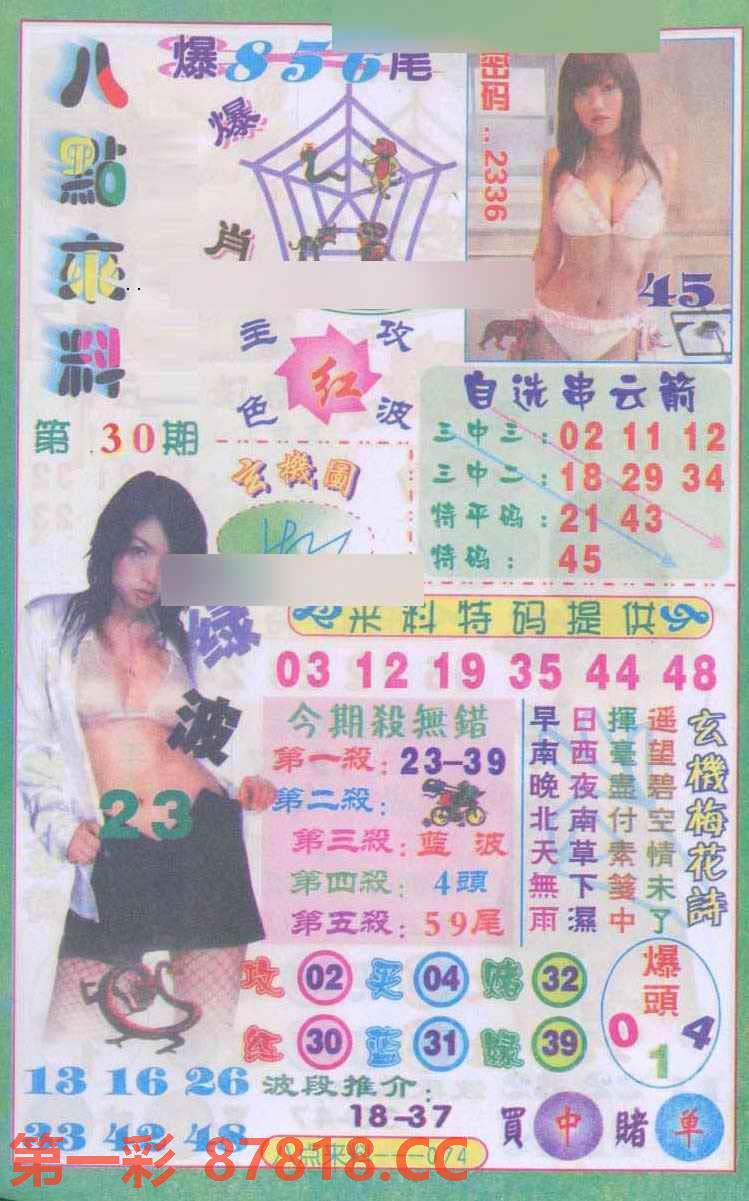 八點來料
爆856尾
爆肖
密码:2336
45
主攻
红
色波
第30期
玄機圖
自选串云箭
三中三:02 11 12
三中二:18 29 34
特平码:21 43
特码:45
绿波
23
来料特码提供
03 12 19 35 44 48
今期殺無錯
第一殺:23-39
第二殺:
第三殺:蓝波
第四殺:4頭
第五殺:59尾
玄機梅花詩
遥望碧空情未了
揮毫盡付素箋中
日西夜南草下濕
早南晚北天無雨
攻 02 买 04 赌 32
红 30 蓝 31 绿 39
爆頭
0 1 4
13 16 26
33 42 48
波段推介:
18-37
買中賭单
第一彩 87818.CC